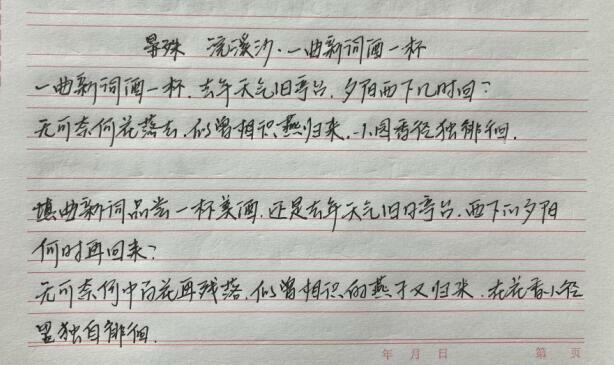 晏殊 浣溪沙·一曲新词酒一杯
一曲新词酒一杯,去年天气旧亭台,夕阳西下几时回?
无可奈何花落去,似曾相识燕归来,小园香径独徘徊.
填曲新词品尝一杯美酒,还是去年天气旧日亭台,西下的夕阳
何时再回来?
无可奈何中百花再残落,似曾相识的燕子又归来,在花香小径
里独自徘徊.
年 月 日 第 页